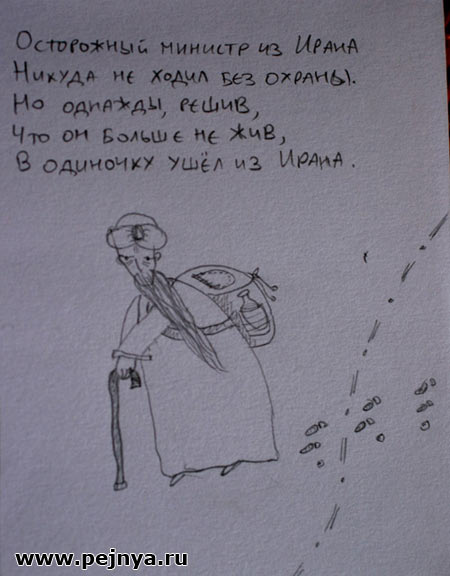 Осторожный министр из Ирана
Никуда не ходил без охраны.
Но однажды, решив,
Что он больше не жив,
В одиночку ушёл из Ирана.
www.pejnya.ru